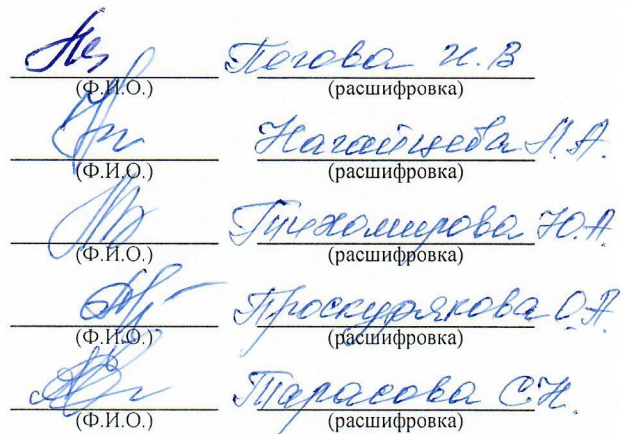 Попова И.В
(Ф.И.О.) (расшифровка)
Нагайцева Л.А.
(Ф.И.О.) (расшифровка)
Тихомирова Ю.А
(Ф.И.О.) (расшифровка)
Проскурякова О.А
(Ф.И.О.) (расшифровка)
Тарасова С.Н.
(Ф.И.О.) (расшифровка)